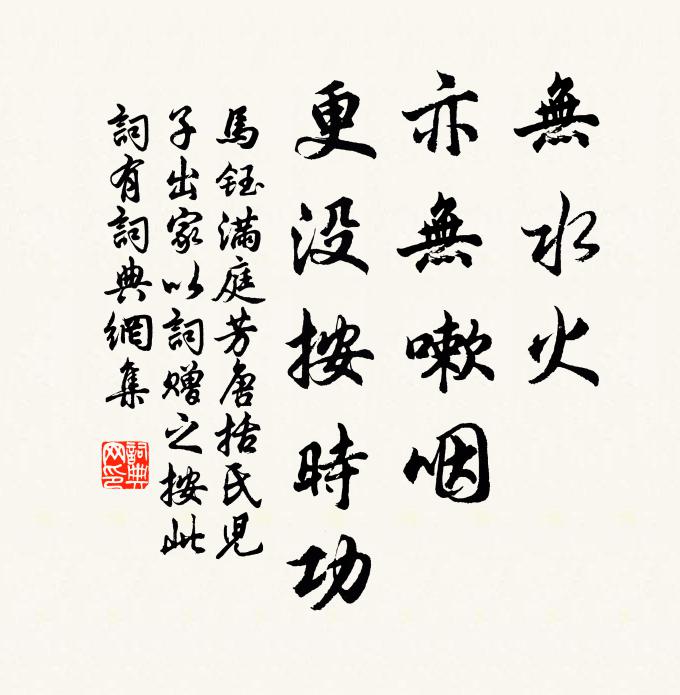 無水火
亦無嗽咽
更没按時功
馬鈺满庭芳唐括氏児
子出家以詞赠之按此
詞有詞典網集
詞典
网印